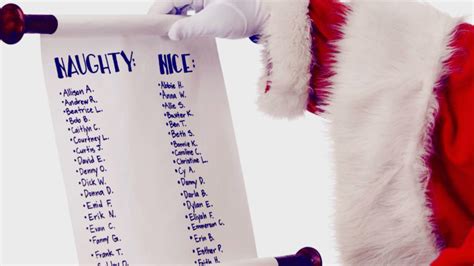 NAUGHTY:
• Allison A.
• Andrew R.
• Beatrice L.
• Bob B.
• Caitlyn C.
• Courtney L.
• Curtis J.
• David E.
• Denny O.
• Dick W.
• Donna D.
• Enid F.
• Erik N.
• Evan O.
• Fanny G.
• Frank T.
NICE:
• Abbie H.
• Anna W.
• Allie S.
• Baxter K.
• Ben T.
• Beth S.
• Bonnie K.
• Caroline C.
• Christine L.
• Cy A.
• Danny D.
• Darla B.
• Dylan E.
• Elijah F.
• Emmerson C.
• Erin B.
• Esther P.
• Faith H.